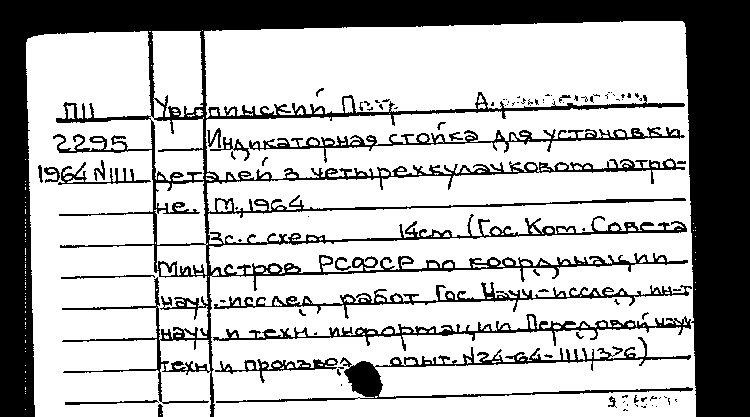 П11 Урюпинский, Петр
2295 Индикаторная стойка для установки
1964 N1111 деталей в четырехкулачковом патро-
не. М., 1964.
3с. с схем. 14см. (Гос. Ком. Совета
Министров РСФСР по координации
науч.-исслед. работ. Гос. Науч.-исслед. ин-т
науч. и техн. информации. Передовой науч.
техн. и производ. опыт. N24-64-1111/376)